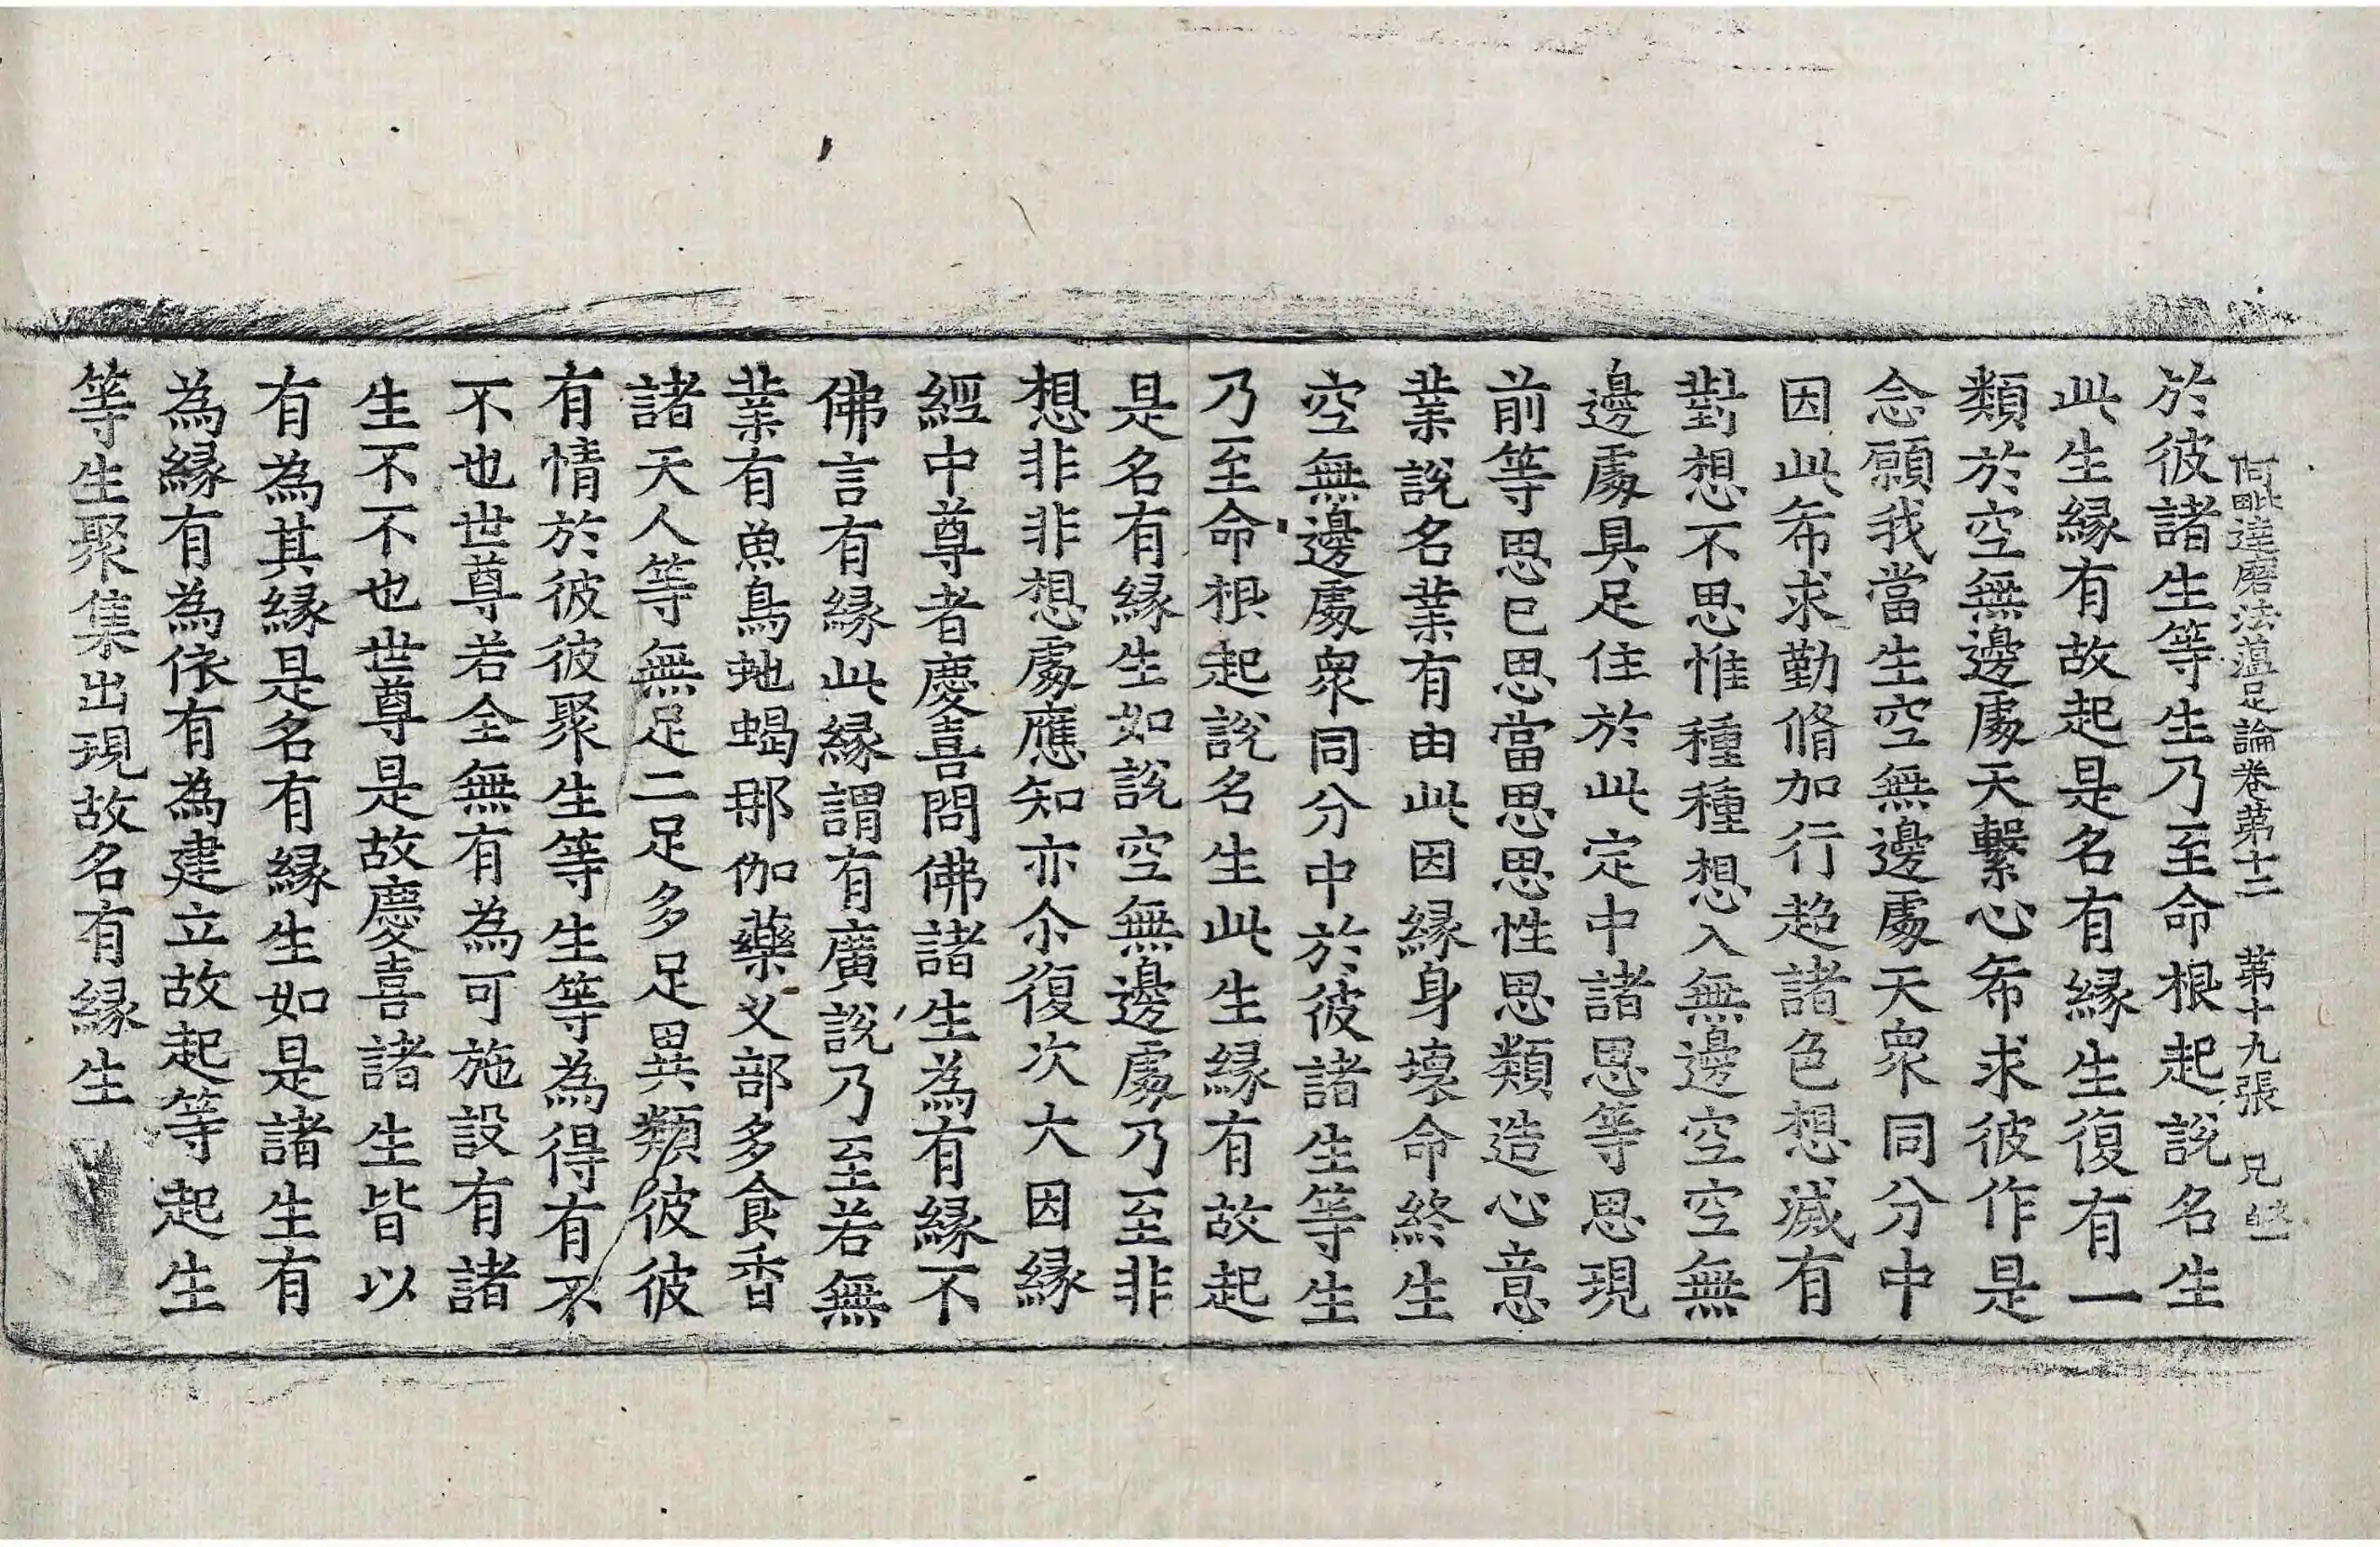 阿毗達磨法蕴足論卷苐十二 苐十九張 兄
於彼諸生等生乃至命根起說名生
此生緣有故起是名有緣生復有一
類於空無邊處天繫心希求彼作是
念願我當生空無邊處天衆同分中
因此希求勤脩加行趍諸色想滅有
對想不思惟種種想入無邊空空無
邊處具足住於此定中諸思等思現
前等思已思當思思性思類造心意
業說名業有由此因緣身壞命終生
空無邊處衆同分中於彼諸生等生
乃至命根起說名生此生緣有故起
是名有緣生如說空無邊處乃至非
想非非想處應知亦尒復次大因緣
經中尊者慶喜問佛諸生為有緣不
佛言有緣此緣謂有廣說乃至若無
業有魚鳥虵蝎那伽藥义部多食香
諸天人等無足二足多足異類彼彼
有情於彼彼聚生等生等為得有不
不也世尊若全無有為可施設有諸
生不不也世尊是故慶喜諸生皆以
有為其緣是名有緣生如是諸生有
為緣有為依有為建立故起等起生
等生聚集出現故名有緣生